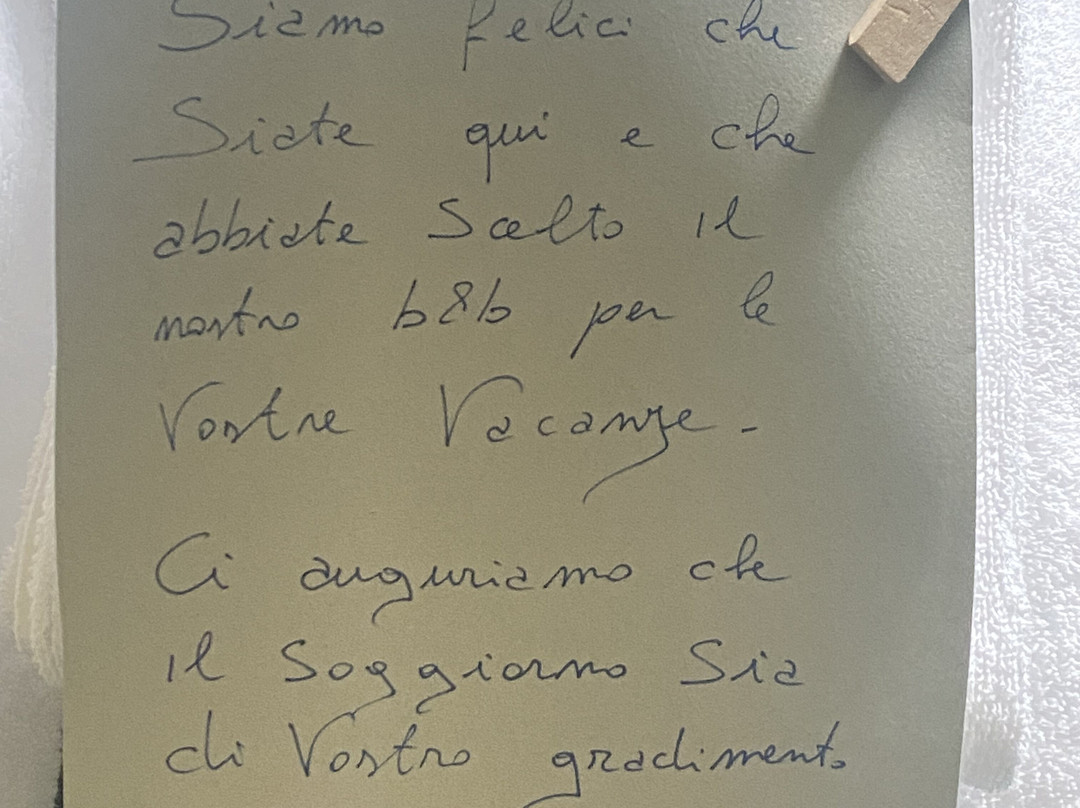 Siamo felici che
Siate qui e che
abbiate Scelto il
nostro b&b per le
Vostre Vacanze -
Ci auguriamo che
il Soggiorno Sia
di Vostro gradimento